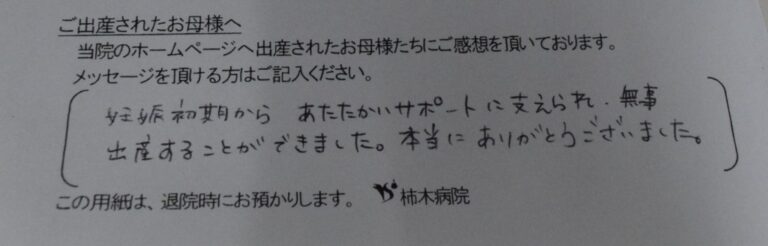 ご出産されたお母様へ
当院のホームページへ出産されたお母様たちにご感想を頂いております。
メッセージを頂ける方はご記入ください。
妊娠初期から あたたかいサポートに支えられ、無事
出産することができました。本当にありがとうございました。
この用紙は、退院時にお預かりします。 柿木病院